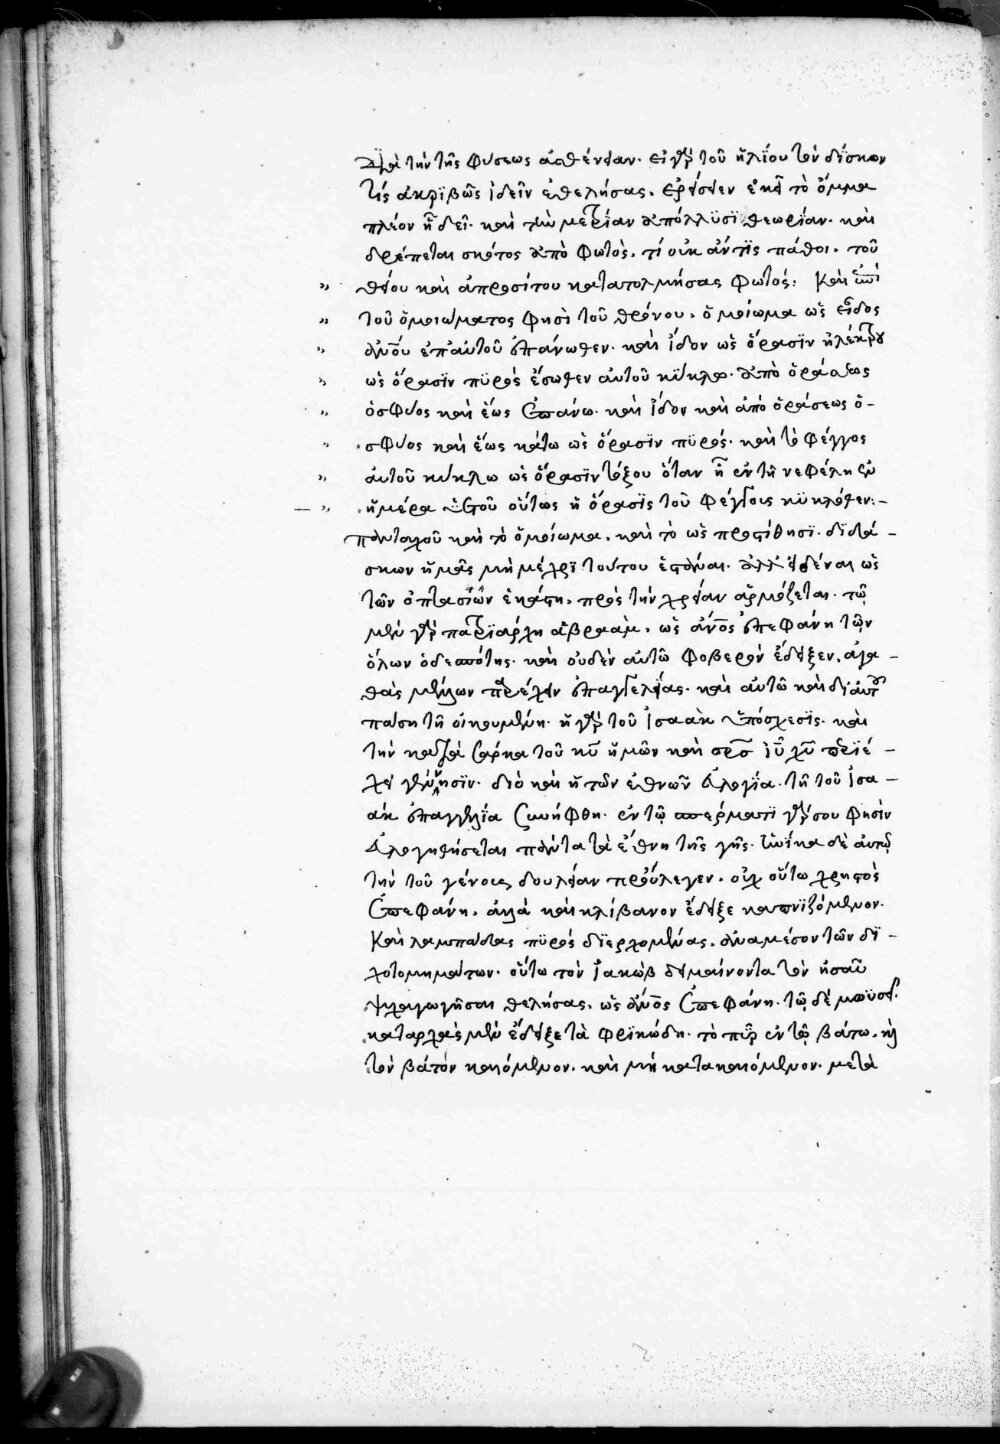 διὰ τὴν τῆς φύσεως ἀσθένειαν. εἰ γὰρ τοῦ ἡλίου τὸν δίσκον
τίς ἀκριβῶς ἰδεῖν ἐθελήσας.
πλέον ἢ δεῖ. καὶ τὴν μετρίαν ἀπόλλυσι θεωρίαν. καὶ
δρέπεται σκότος ἀπὸ φωτὸς. τί οὐκ ἄν τις πάθοι. τοῦ
" θείου καὶ ἀπροσίτου κατατολμήσας φωτός: Καὶ ἐπὶ
" τοῦ ὁμοιώματος φησὶ τοῦ θρόνου. ὁμοίωμα ὡς εἶδος
" ἀνοῦ ἐπ' αὐτοῦ ἐπάνωθεν. καὶ ἴδον ὡς ὅρασϊν ἠλέκτρου
" ὡς ὅρασϊν πϋρὸς ἔσωθεν αὐτοῦ κύκλω. ἀπὸ ὁράσεως
" ὀσφύος καὶ ἕως ἐπάνω. καὶ ἴδον καὶ ἀπὸ ὁράσεως ὀ-
" σφύος καὶ ἕως κάτω ὡς ὅρασϊν πϋρός. καὶ τὸ φέγγος
" αὐτοῦ κύκλω ὡς ὅρασϊν τόξου ὅταν ἦ ἐν τῆ νεφέλη ἐν
" ἡμέρα ὑετοῦ οὕτως ἡ ὅρασϊς τοῦ φέγγους κϋκλόθεν:-
πανταχοῦ καὶ τὸ ὁμοίωμα. καὶ τὸ ὡς προστίθησϊ. διδά-
σκων ἡμᾶς μὴ μέχρϊ τούτου ἑστάναι. ἀλλ' εἰδέναι ὡς
τῶν ὀπτασιῶν ἑκάστη. πρὸς τὴν χρείαν ἁρμόζεται. τῷ
μὲν γὰρ πατριάρχη ἀβραὰμ. ὡς ἄνος ἐπεφάνη τῶν
ὅλων ὁ δεσπότης. καὶ οὐδὲν αὐτῶ φοβερὸν ἔδειξεν. ἀγα-
θὰς μέλλων παρέχειν ἐπαγγελίας. καὶ αὐτῶ καὶ δι' αὐτοῦ
πάση τῆ οἰκουμένη. ἡ γὰρ τοῦ ἰσαὰκ ὑπόσχεσϊς. καὶ
τὴν κατὰ σάρκα τοῦ κυ ἡμῶν καὶ σρσ ιυ χυ περιέ-
χει γέννησϊν. διὸ καὶ ἡ τῶν ἐθνῶν εὐλογία. τῆ τοῦ ἰσα-
ὰκ ἐπαγγελία συνήφθη. ἐν τῷ σπέρματϊ γάρ σου φησὶν
εὐλογηθήσεται πάντα τὰ ἔθνη τῆς γῆς. ἡνίκα δὲ αὐτῷ
τὴν τοῦ γένους δουλείαν προύλεγεν. οὐχ οὕτω χρηστὸς
ἐπεφάνη. ἀλλὰ καὶ κλίβανον ἔδειξε καπνϊζόμενον.
Καὶ λαμπάδας πϋρὸς διερχομένας. ἀναμέσον τῶν δϊ-
χοτομημάτων. οὕτω τὸν ἰακὼβ δειμαίνοντα τὸν ἡσαῦ
ψυχαγωγῆσαι θελήσας. ὡς ἄνος ἐπεφάνη. τῷ δὲ μωϋσεῖ.
καταρχὰς μὲν ἔδειξε τὰ φρϊκώδη. τὸ πῦρ ἐν τῷ βάτω. καὶ
τὸν βάτον καιόμενον. καὶ μὴ κατακαιόμενον. μετὰ